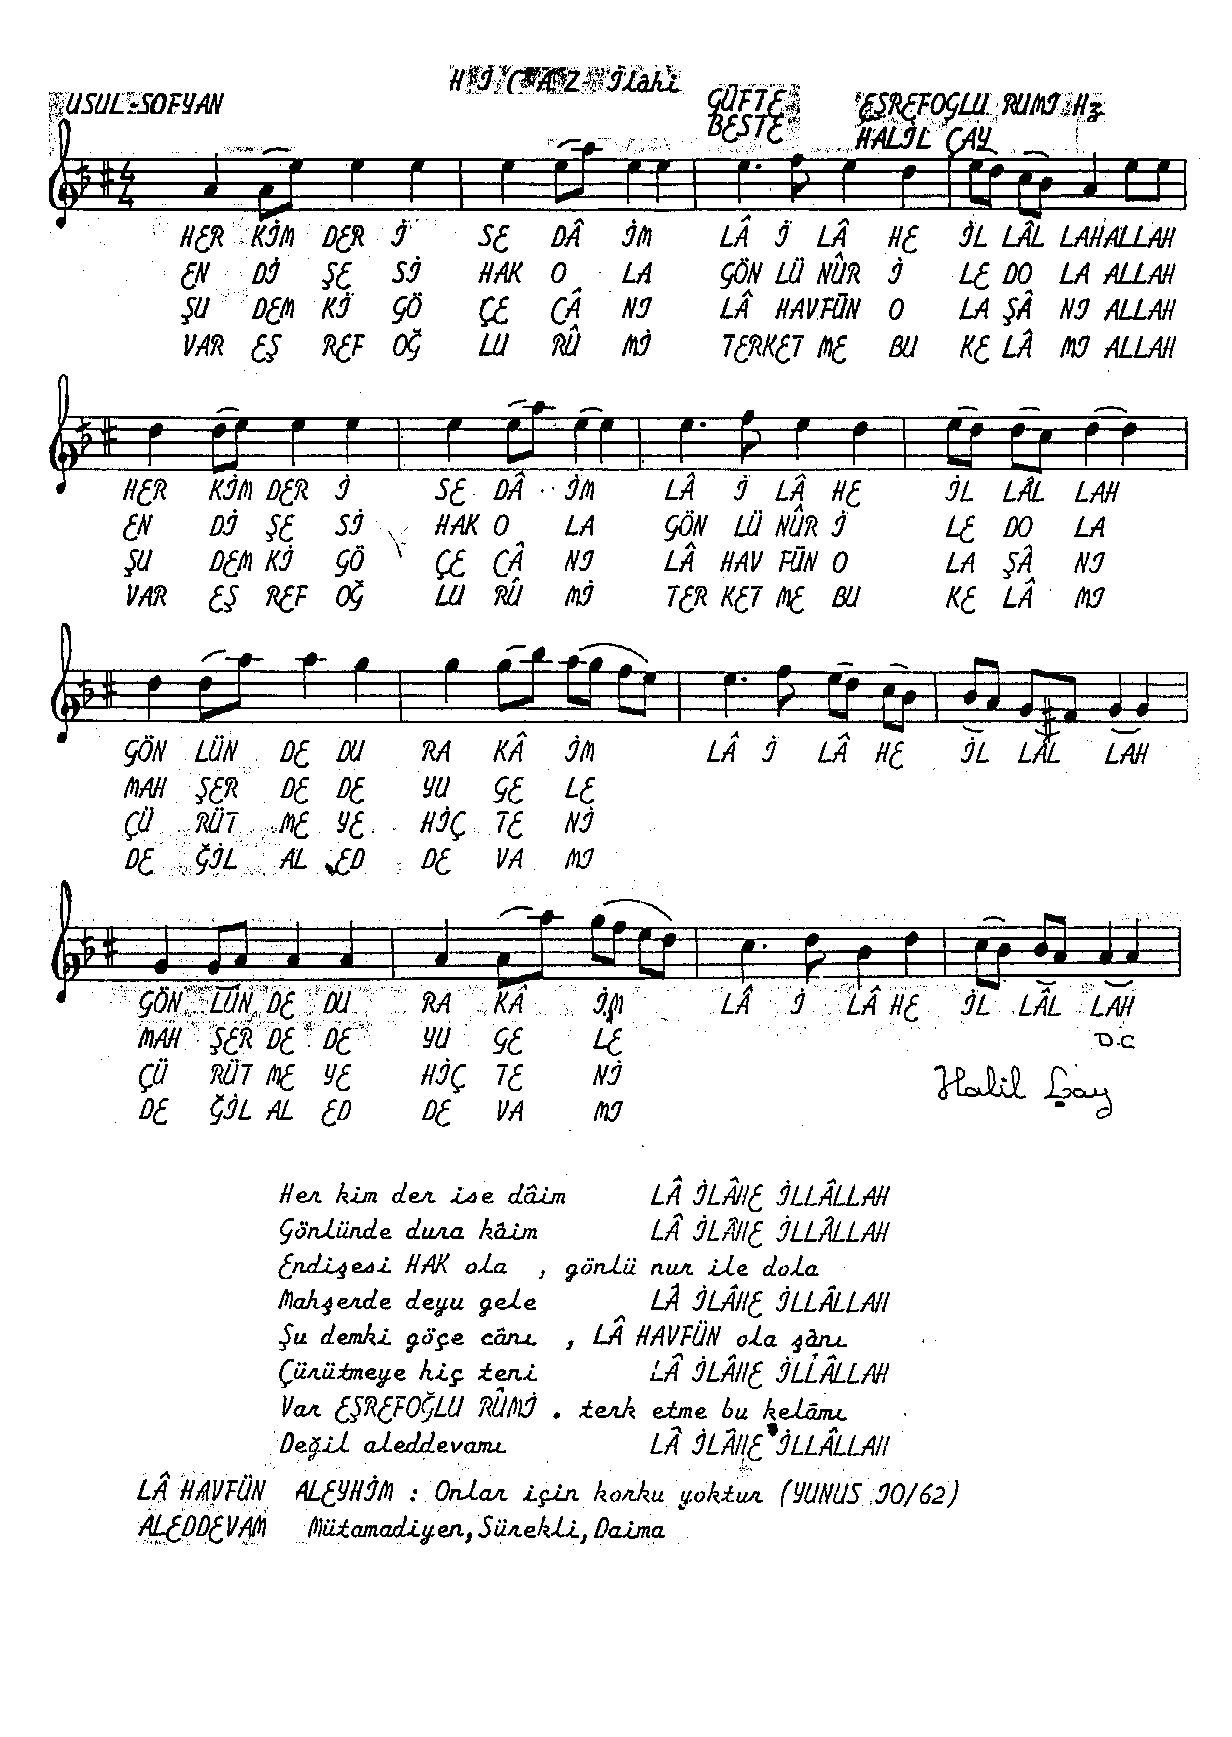 HİCAZ İlahi
USUL-SOFYAN
GÜFTE EŞREFOĞLU RUMİ Hz
BESTE HALİL ÇAY
4
4
HER KİM DER İ SE DÂ İM LÂ İ LÂ HE İL LÂL LAH ALLAH
EN Dİ ŞE Sİ HAK O LA GÖN LÜ NÛR İ LE DO LA ALLAH
ŞU DEM Kİ GÖ ÇE CÂ NI LÂ HAV FÜN O LA ŞÂ NI ALLAH
VAR EŞ REF OĞ LU RÛ Mİ TERKET ME BU KE LÂ MI ALLAH
HER KİM DER İ SE DÂ İM LÂ İ LÂ HE İL LÂL LAH
EN Dİ ŞE Sİ HAK O LA GÖN LÜ NÛR İ LE DO LA
ŞU DEM Kİ GÖ ÇE CÂ NI LÂ HAV FÜN O LA ŞÂ NI
VAR EŞ REF OĞ LU RÛ Mİ TER KET ME BU KE LÂ MI
GÖN LÜN DE DU RA KÂ İM LÂ İ LÂ HE İL LÂL LAH
MAH ŞER DE DE YU GE LE
ÇÜ RÜT ME YE HİÇ TE Nİ
DE ĞİL AL ED DE VA MI
GÖN LÜN DE DU RA KÂ İM LÂ İ LÂ HE İL LÂL LAH
MAH ŞER DE DE YU GE LE D.C
ÇÜ RÜT ME YE HİÇ TE Nİ Halil Çay
DE ĞİL AL ED DE VA MI
Her kim der ise dâim LÂ İLÂHE İLLÂLLAH
Gönlünde dura kâim LÂ İLÂHE İLLÂLLAH
Endişesi HAK ola , gönlü nur ile dola
Mahşerde deyu gele LÂ İLÂHE İLLÂLLAH
Şu demki göçe cânı , LÂ HAVFÜN ola şànı
Çürütmeye hiç teni LÂ İLÂHE İLLÂLLAH
Var EŞREFOĞLU RÛMİ . terk etme bu kelâmı
Değil aleddevamı LÂ İLÂHE İLLÂLLAH
LÂ HAVFÜN ALEYHİM : Onlar için korku yoktur (YUNUS 10/62)
ALEDDEVAM Mütamadiyen, Sürekli, Daima